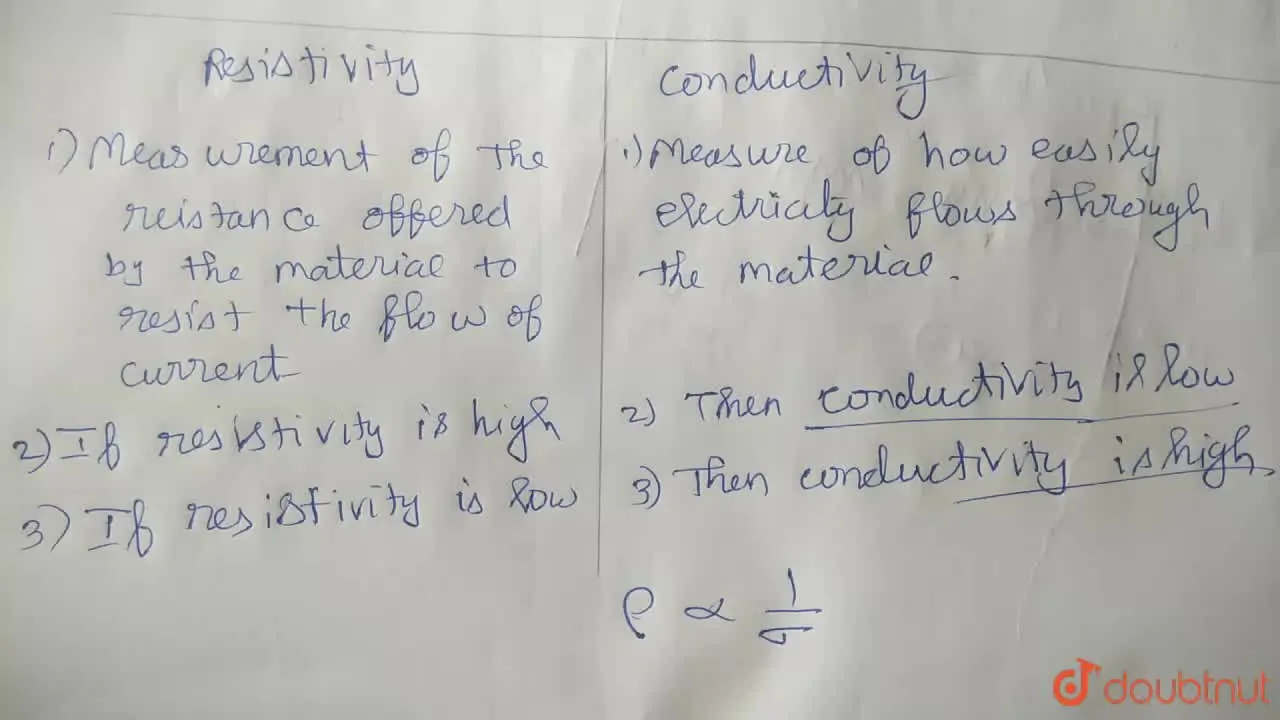 Resistivity
1) Measurement of the
reistance offered
by the material to
resist the flow of
current
2) If resistivity is high
3) If resistivity is low
Conductivity
1) Measure of how easily
electricaty flows through
the material.
2) Then conductivity is low
3) Then conductivity is high
ρ ∝ 1/σ
doubtnut